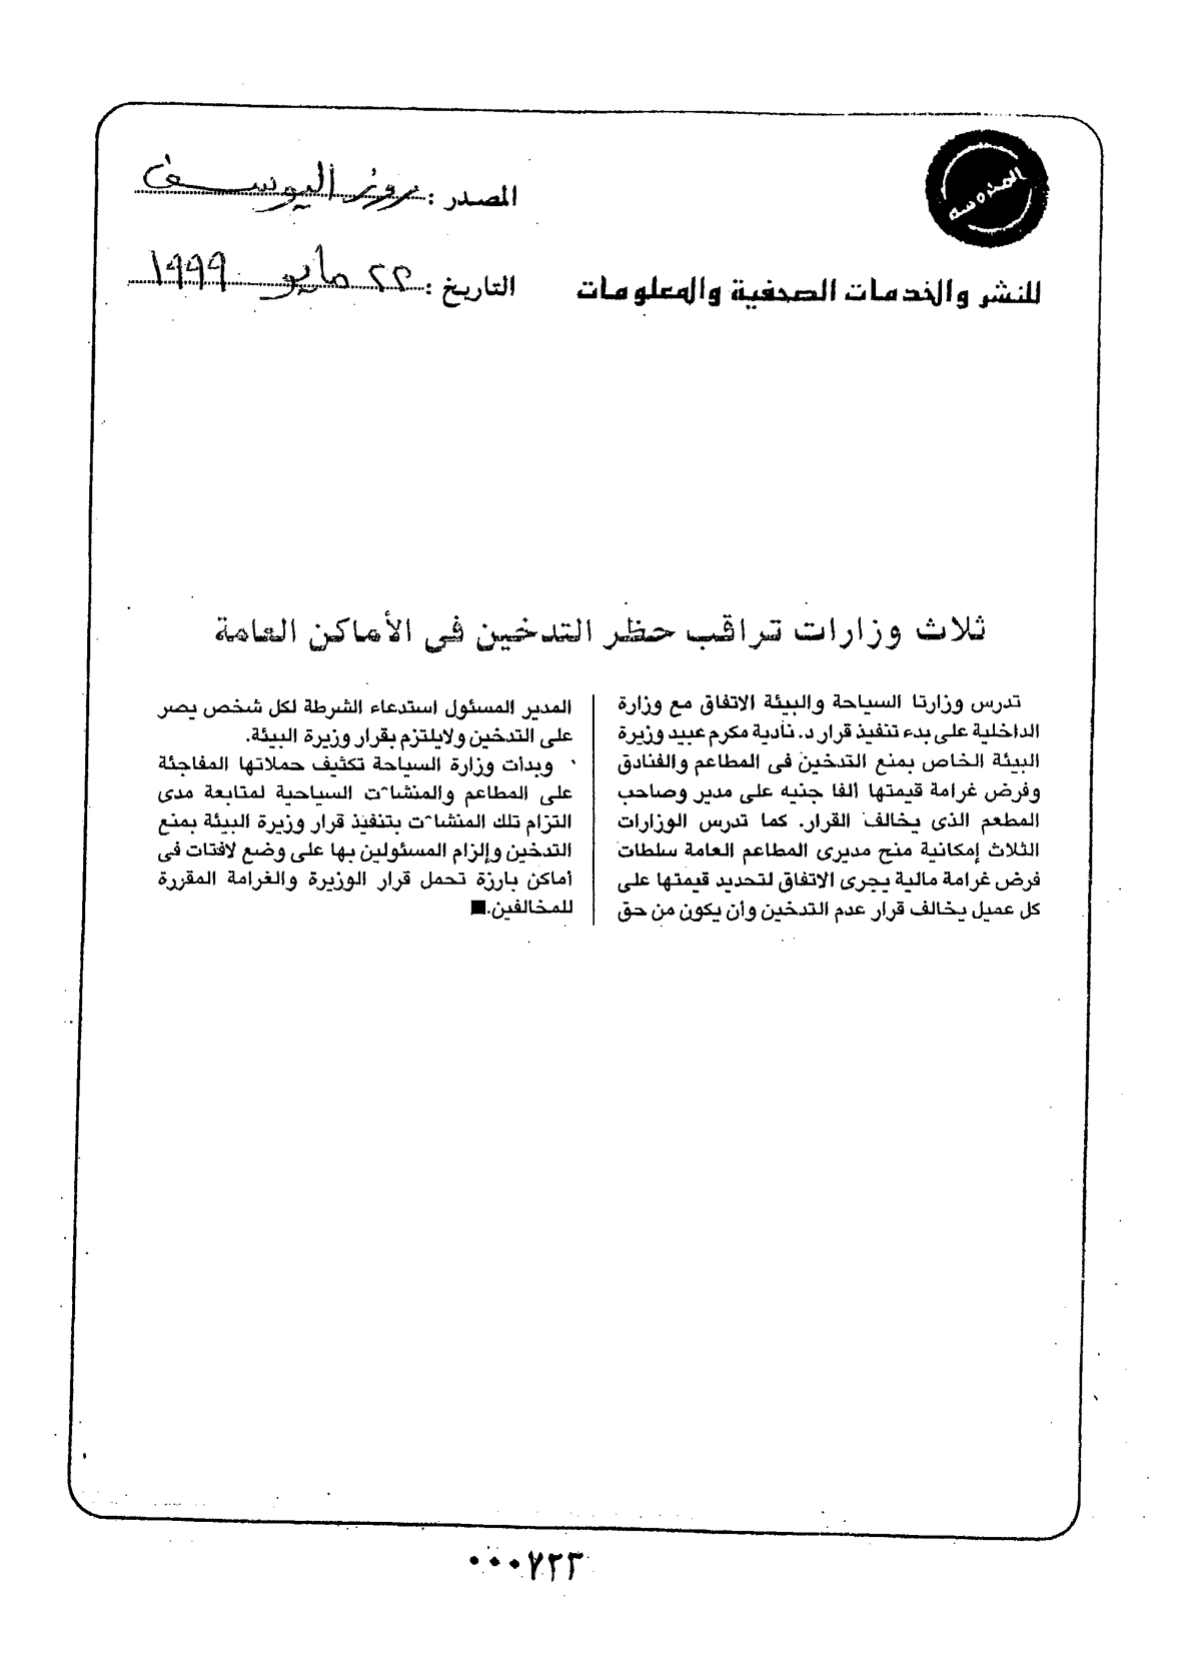 المحروسة
المصدر : روز اليوسف
للنشر والخدمات الصحفية والمعلومات
التاريخ : ٢٢ مايو ١٩٩٩
ثلاث وزارات تراقب حظر التدخين فى الأماكن العامة
تدرس وزارتا السياحة والبيئة الاتفاق مع وزارة
الداخلية على بدء تنفيذ قرار د. نادية مكرم عبيد وزيرة
البيئة الخاص بمنع التدخين فى المطاعم والفنادق
وفرض غرامة قيمتها ألفا جنيه على مدير وصاحب
المطعم الذى يخالف القرار. كما تدرس الوزارات
الثلاث إمكانية منح مديرى المطاعم العامة سلطات
فرض غرامة مالية يجرى الاتفاق لتحديد قيمتها على
كل عميل يخالف قرار عدم التدخين وأن يكون من حق
المدير المسئول استدعاء الشرطة لكل شخص يصر
على التدخين ولايلتزم بقرار وزيرة البيئة.
وبدأت وزارة السياحة تكثيف حملاتها المفاجئة
على المطاعم والمنشآت السياحية لمتابعة مدى
التزام تلك المنشآت بتنفيذ قرار وزيرة البيئة بمنع
التدخين وإلزام المسئولين بها على وضع لافتات فى
أماكن بارزة تحمل قرار الوزيرة والغرامة المقررة
للمخالفين.■
٠٠٠٧٢٣